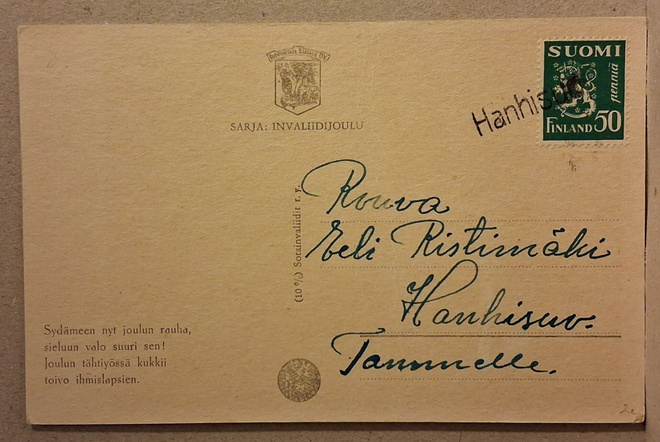 SARJA: INVALIDIJOULU
Hanhisuo
SUOMI
penniä
FINLAND 50
Rouva
Eeli Ristimäki
Hanhisuv.
Tammelle.
(10 %) Sotainvaliidit r. y.
Sydämeen nyt joulun rauha,
sieluun valo suuri sen!
Joulun tähtiyössä kukkii
toivo ihmislapsien.